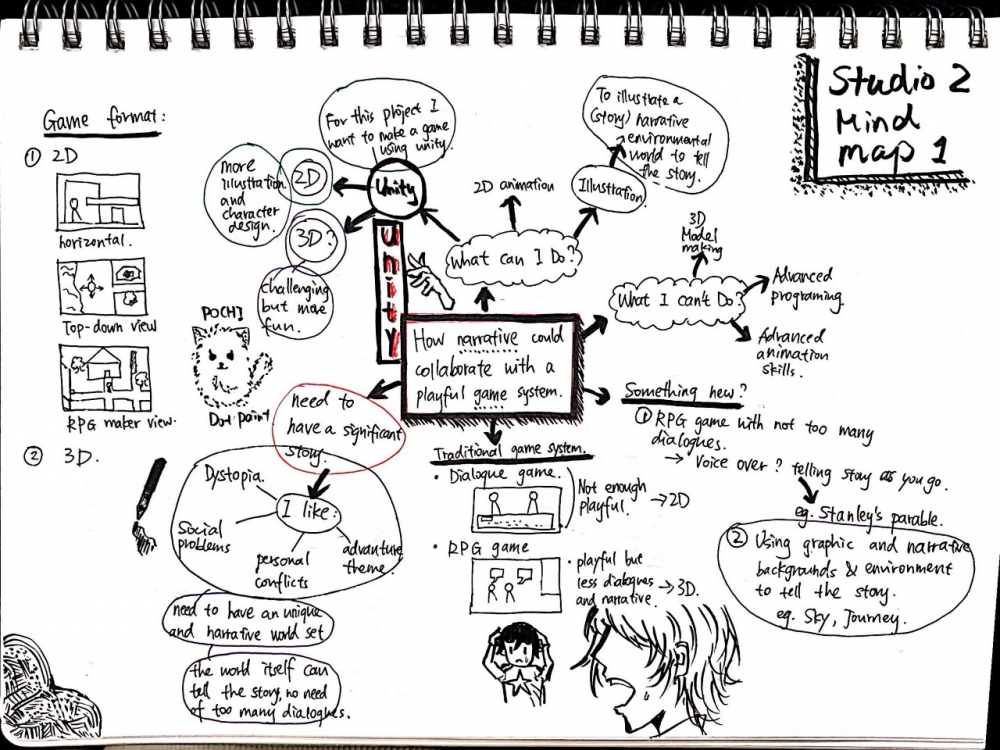 Studio 2
Mind
map 1
Game format:
① 2D
horizontal.
Top-down view
RPG maker view.
② 3D.
For this project I
want to make a game
using unity.
Unity
2D
more
illustration
and
character
design.
3D?
challenging
but more
fun.
Umity
What can I Do?
2D animation
Illustration
To illustrate a
(story) narrative
environmental
world to tell
the story.
What I can't Do?
3D
Model
making
Advanced
programing.
Advanced
animation
skills.
How narrative could
collaborate with a
playful game system.
POCHI
Dot paint
need to
have a significant
story.
I like:
Dystopia.
Social
problems
personal
conflicts
advanture
theme.
need to have an unique
and narrative world set
the world itself can
tell the story, no need
of too many dialogues.
Traditional game system.
• Dialogue game.
Not enough
playful. → 2D
• RPG game
• playful but
less dialogues → 3D.
and narrative.
Something new?
① RPG game with not too many
dialogues.
→ Voice over? telling story as you go.
eg. Stanley's parable.
② Using graphic and narrative
backgrounds & environment
to tell the story.
eg. Sky, Journey.